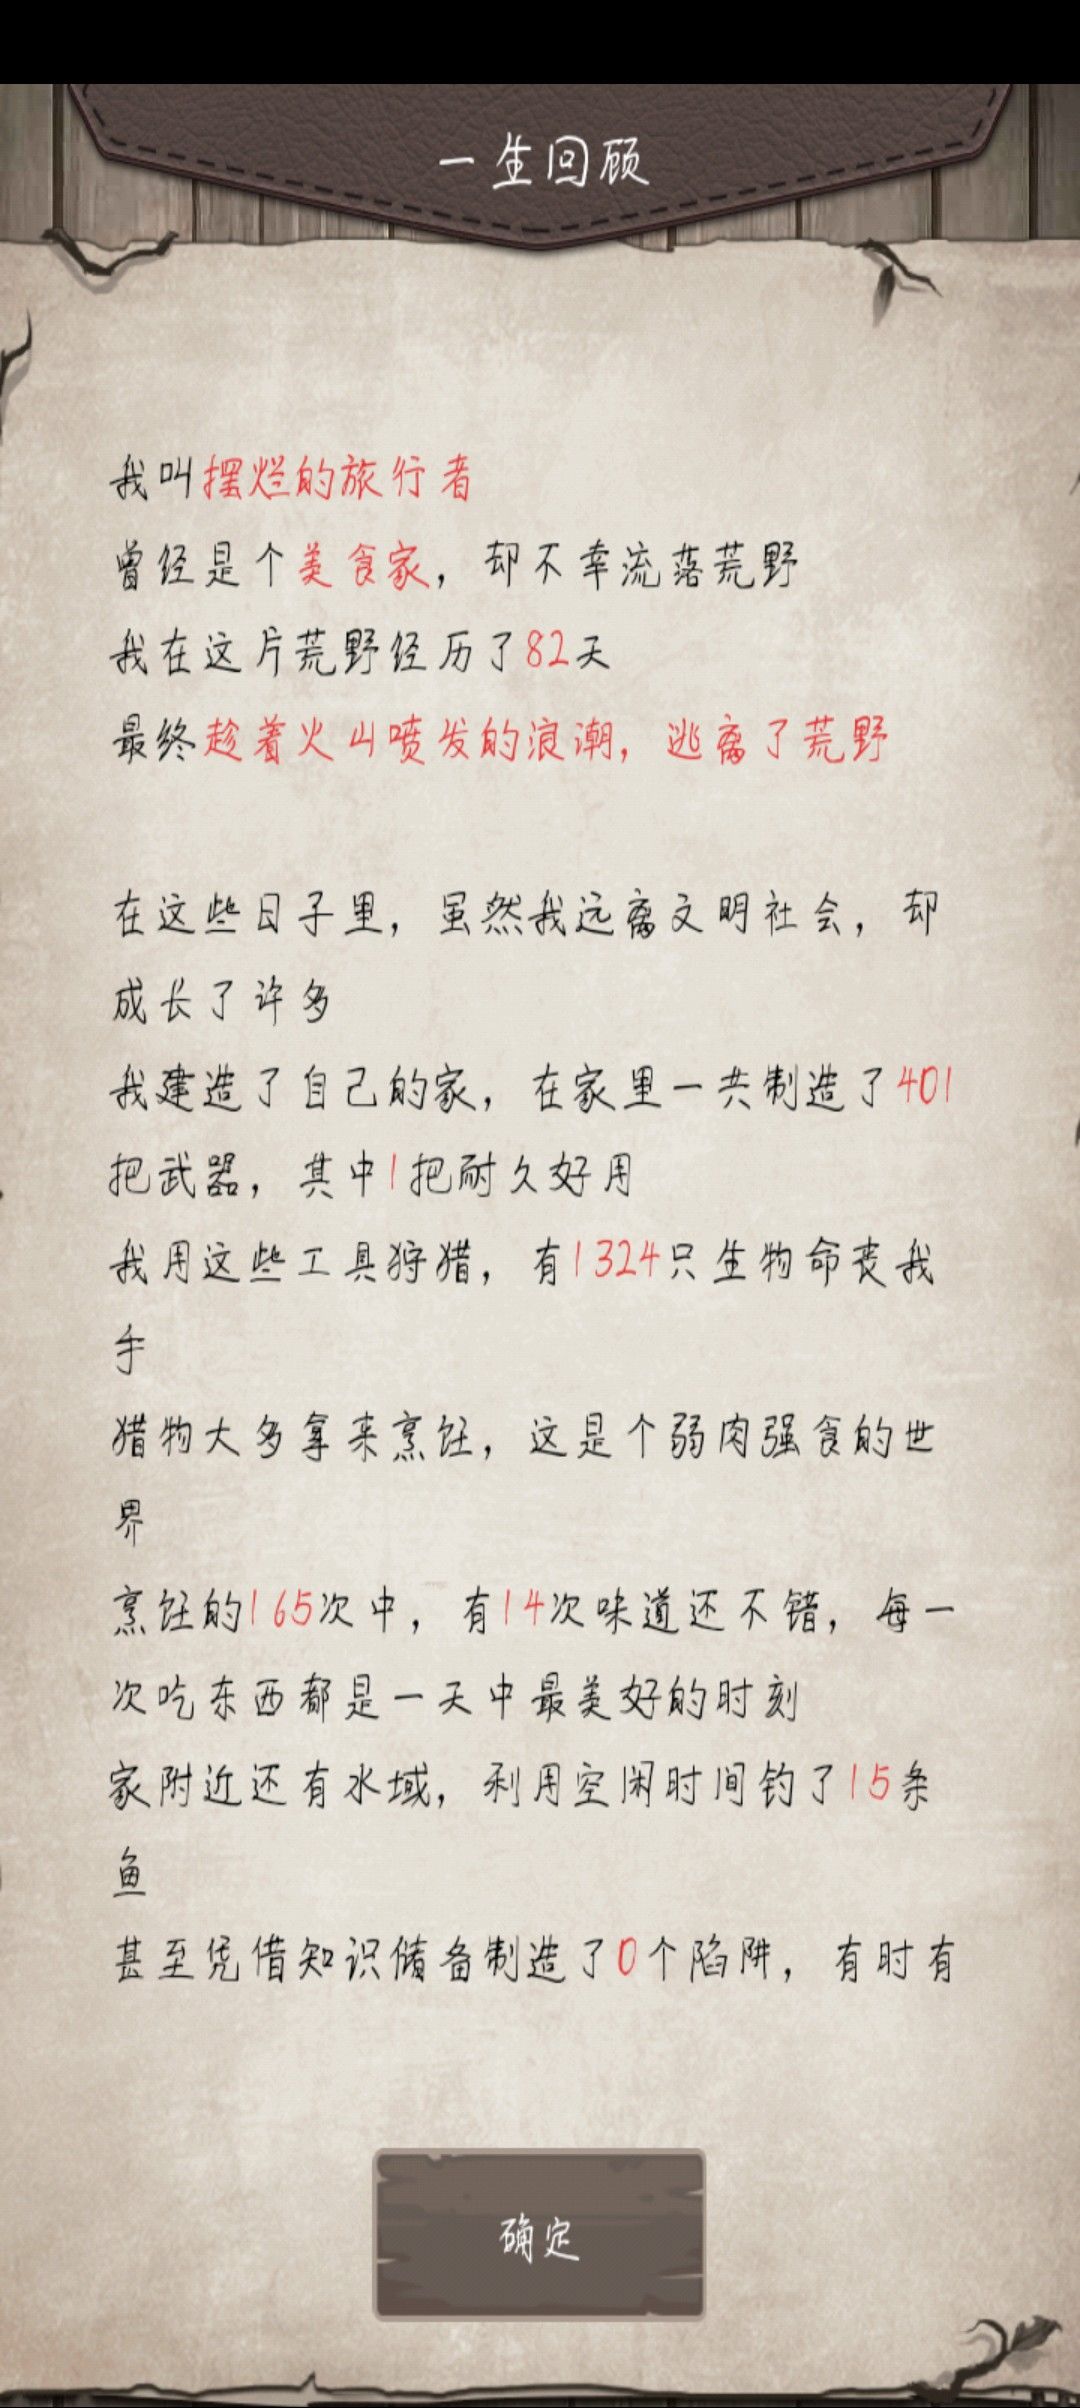 一生回顾
我叫摆烂的旅行者
曾经是个美食家，却不幸流落荒野
我在这片荒野经历了82天
最终趁着火山喷发的浪潮，逃离了荒野
在这些日子里，虽然我远离文明社会，却
成长了许多
我建造了自己的家，在家里一共制造了401
把武器，其中1把耐久好用
我用这些工具狩猎，有1324只生物命丧我
手
猎物大多拿来烹饪，这是个弱肉强食的世
界
烹饪的165次中，有14次味道还不错，每一
次吃东西都是一天中最美好的时刻
家附近还有水域，利用空闲时间钓了15条
鱼
甚至凭借知识储备制造了0个陷阱，有时有
确定